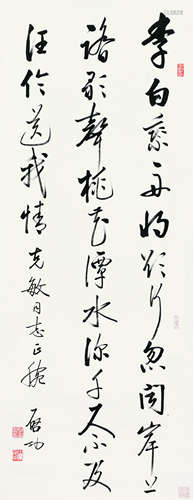 李白乘舟将欲行忽闻岸上
踏歌声桃花潭水深千尺不及
汪伦送我情 克敏同志正腕 启功